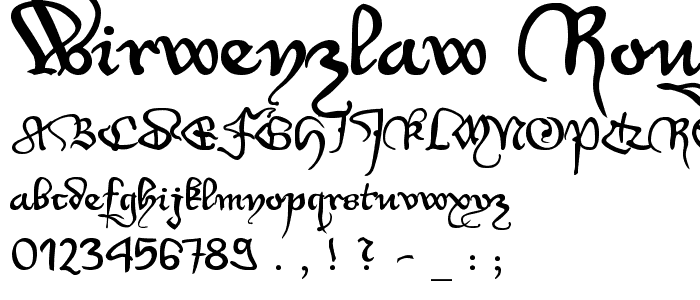 Wirwenzlaw Rou
ABCDEFGHIJKLMNOPQR
abcdefghijklmnopqrstuvwxyz
0123456789 . , ! ? - _ : ;